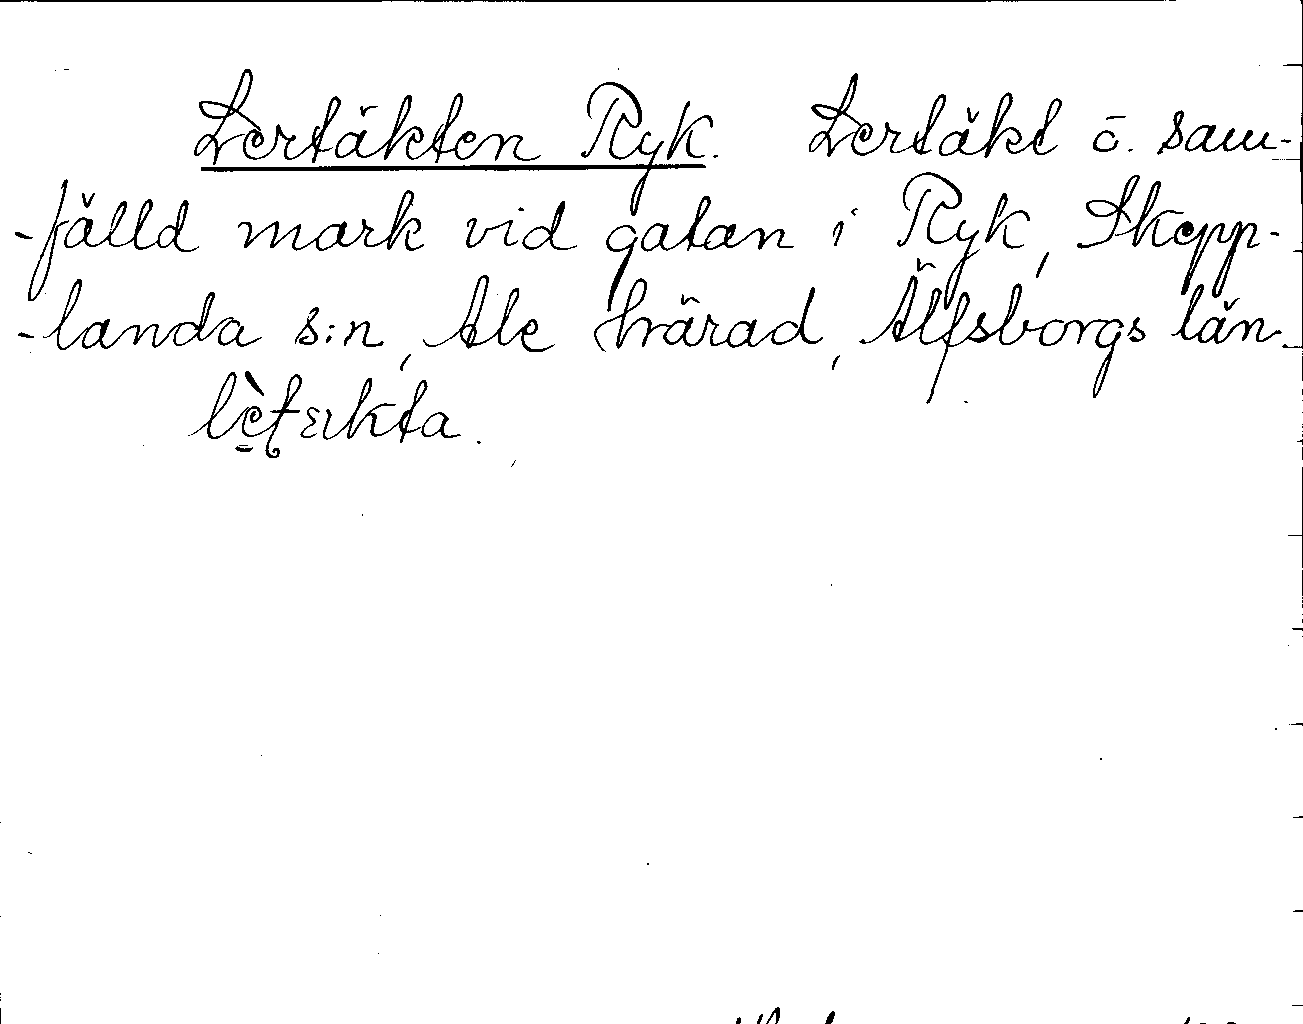 Lertäkten Ryk. Lertäkt å sam-
-fälld mark vid gatan i Ryk, Skepp-
-landa s:n, Ale härad, Älfsborgs län.